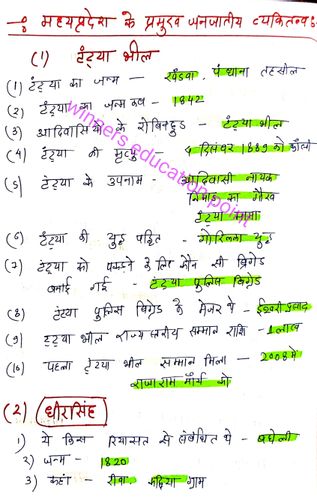 मध्यप्रदेश के प्रमुख जनजातीय व्यक्तित्व :-
(1) टंट्या भील
(1) टंट्या का जन्म - खंडवा, पंधाना तहसील
(2) टंट्या का जन्म कब - 1842
(3) आदिवासियो के रोबिनहुड - टंट्या भील
(4) टंट्या की मृत्यु - 4 दिसंबर 1889 को फाँसी
(5) टंट्या के उपनाम - आदिवासी नायक
निमाड़ का गौरव
टंट्या मामा
(6) टंट्या की युद्ध पद्धति - गोरिल्ला युद्ध
(7) टंट्या को पकड़ने के लिए कौन सी ब्रिगेड
बनाई गई - टंट्या पुलिस ब्रिगेड
(8) टंट्या पुलिस ब्रिगेड के मेजर थे - ईश्वरी प्रसाद
(9) टंट्या भील राज्य स्तरीय सम्मान राशि - 1 लाख
(10) पहला टंट्या भील सम्मान मिला - 2008 मे
राजाराम मौर्य को
(2) धीरसिंह
1) ये किस रियासत से संबंधित थे - बघेली
2) जन्म - 1820
3) कहा - रीवा, ग्राम
winners education point